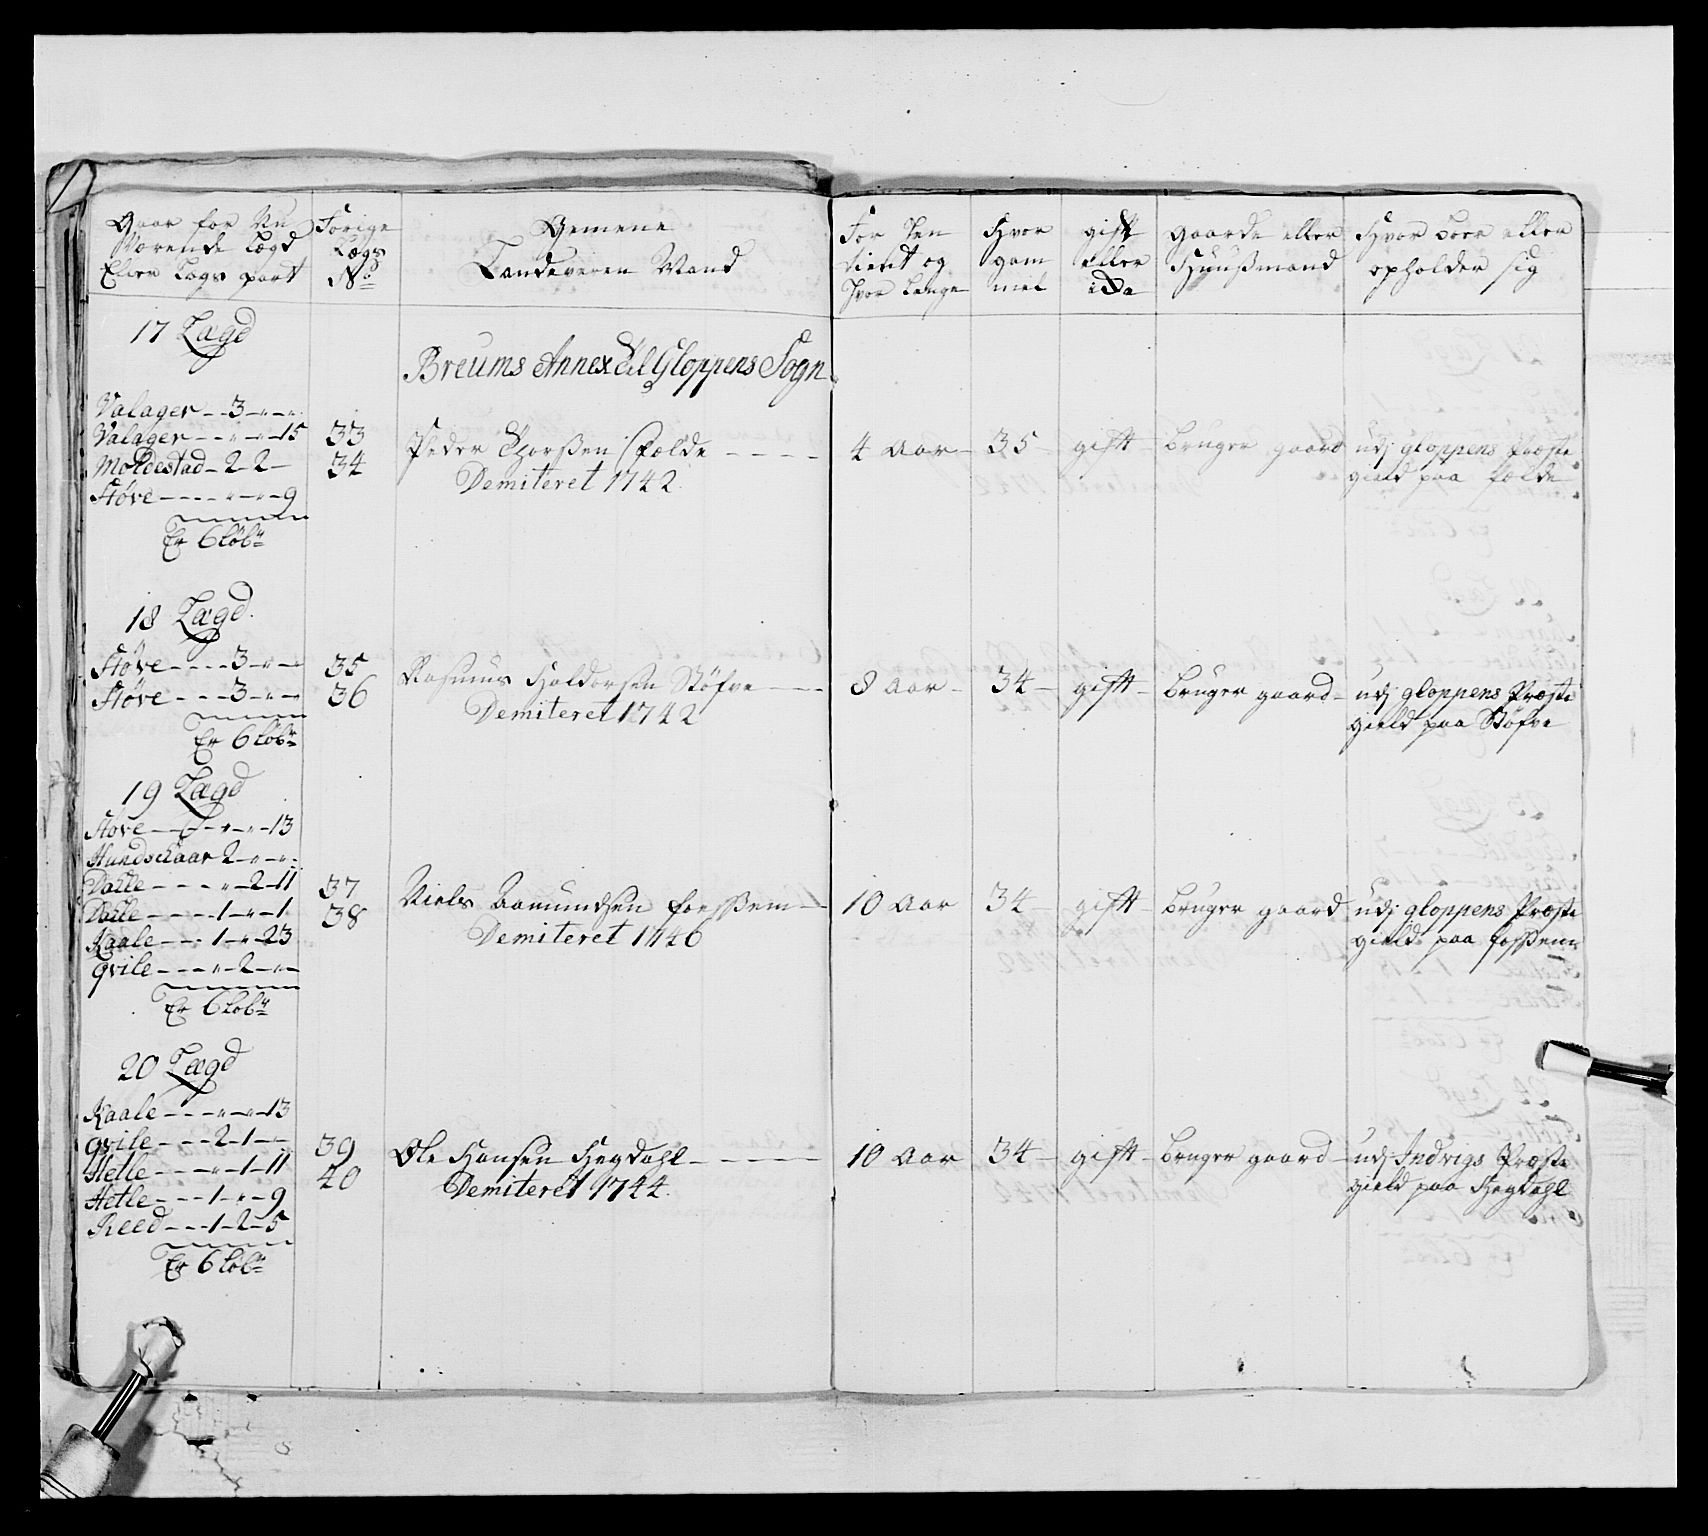 Gaar for Nu
Værende Lægd
Eller Lægs part
Forige
Lægs
No
Gemene
Landeværn Mand
For hen
tient og
Hvor Lenge
Hvor
gam
mel
gift
eller
ida
Gaarde eller
Huusmand
Hvor boer eller
opholder sig
17 Lægd
Breums Annex til Gloppens Sogn
Valager - - 3 - „ - „
Valager - - „ - „ - 15
Moldestad - 2 - 2 -
Støve - - - - „ - „ - 9
Er 6 løbr
33
34
Peder Thorsen Fælde - - - -
Demiteret 1742
4 Aar - 35 - gift - bruger gaard
udj gloppens Præste
gield paa Fælde
18 Lægd.
Støve - - - - 3 - „ - „
Støve - - - 3 - „ - „
Er 6 løbr
35
36
Rasmus Haldorsen Støfve - - -
Demiteret 1742
8 Aar - 34 - gift - bruger gaard -
udj gloppens Præste
gield paa Støfve
19 Lægd
Støve - - „ - „ - 13
Hundschaar 2 - „ - „
Dahle - - - - „ - 2 - 11
Dahle - - - - 1 - „ - 1
Kaale - - - 1 - „ - 23
qvile - - - „ - 2 - „ -
Er 6 løbr
37
38
Niels Aamundsen Fossem - -
Demiteret 1746
10 Aar 34 - gift - bruger gaard
udj gloppens Præste
gield paa Fossem
20 Lægd
Kaale - - - „ - „ - 13
qvile - - - 2 - 1 - „ -
Hetle - - - „ - 1 - 11
Hetle - - - 1 - „ - 9
Reed - - - 1 - 2 - 5
Er 6 løbr
39
40
Ole Hansen Hegdahl - - - - -
Demiteret 1744.
10 Aar 34 - gift - bruger gaard -
udj Indvigs Præste
gield paa Hegdahl